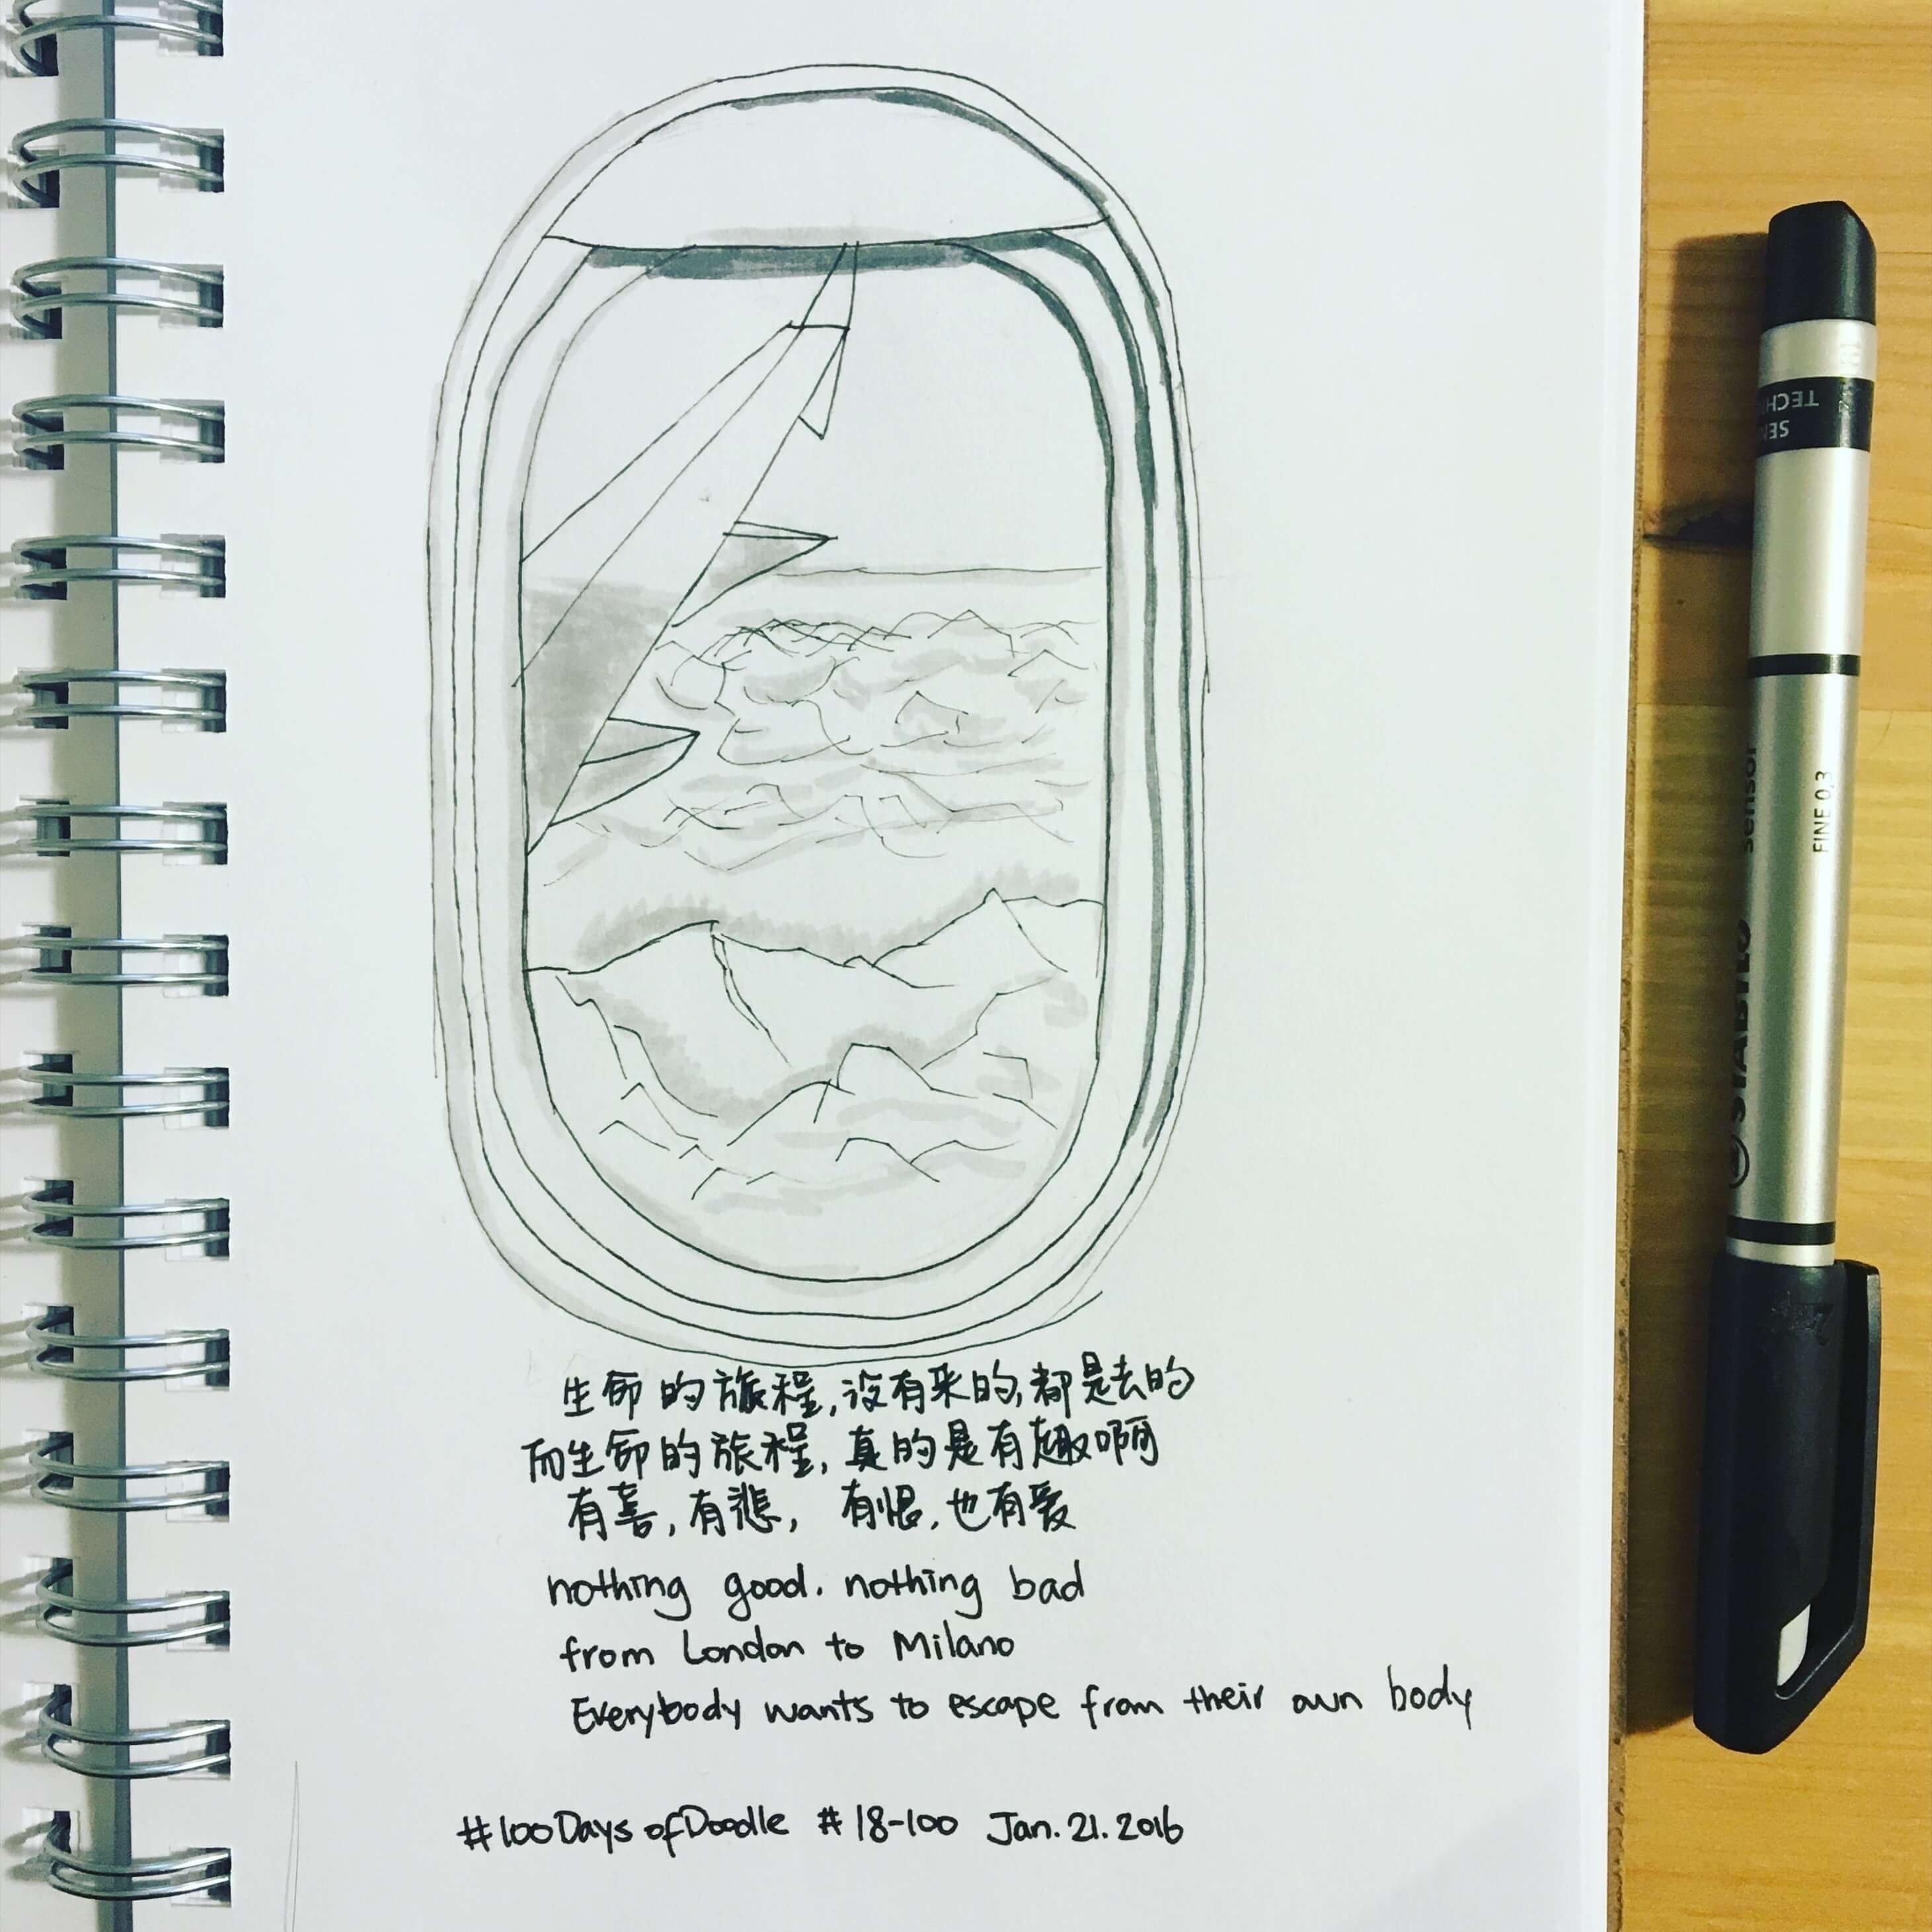 生命的旅程,没有来的,都是去的
而生命的旅程,真的是有趣啊
有喜,有悲, 有恨,也有爱
nothing good. nothing bad
from London to Milano
Everybody wants to escape from their own body
#100DaysofDoodle #18-100 Jan.21.2016
STABILO sensor
FINE 0,3